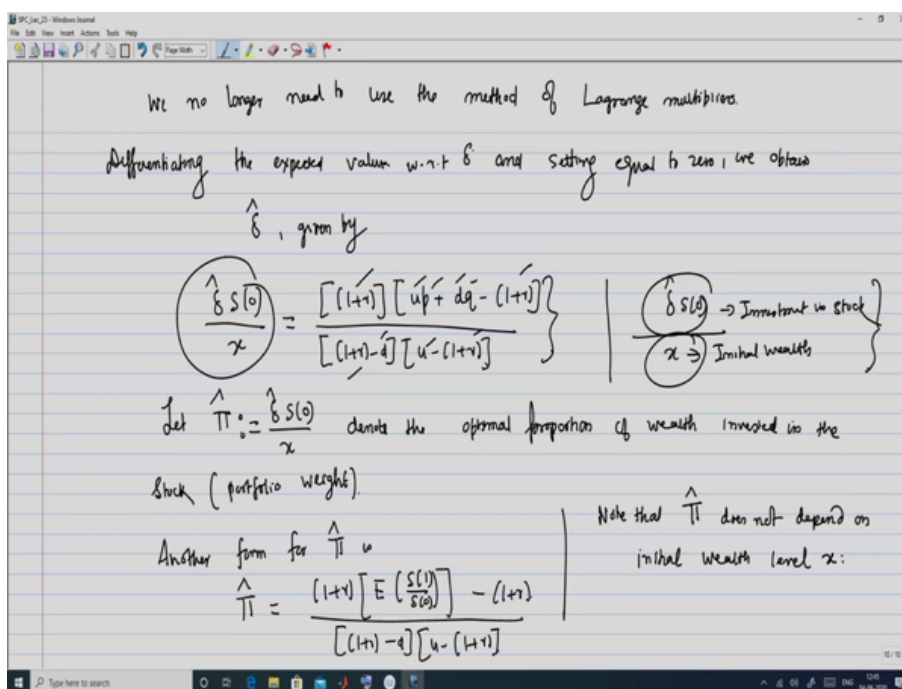 SPC_Lec_23 - Windows Journal
File Edit View Insert Actions Tools Help
Page Width
We no longer need to use the method of Lagrange multipliers.
Differentiating the expected value w.r.t δ and setting equal to zero, we obtain
δ̂, given by
δ̂ S(0) / x = [(1+r)] [up + dq - (1+r)] / [(1+r)-d] [u-(1+r)] }
δ̂ S(0) → Investment in stock
x → Initial wealth }
Let Π̂ := δ̂ S(0) / x denote the optimal proportion of wealth invested in the
stock (portfolio weight).
Another form for Π̂ is
Π̂ = (1+r) [E (S(1)/S(0)] - (1+r) / [(1+r)-d] [u-(1+r)]
Note that Π̂ does not depend on
initial wealth level x:
10 / 10
Type here to search
ENG
12:45